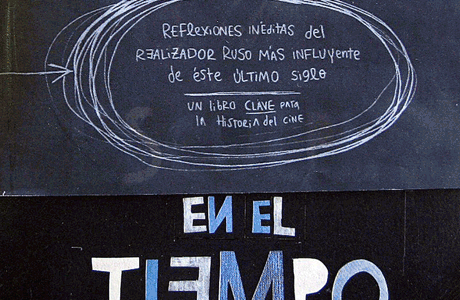 REFLEXIONES INÉDITAS del
REALIZADOR RUSO MÁS INFLUYENTE
de éste ÚLTIMO SIGLO
UN libRO CLAVE paRa
la HistoRia del ciNE
EN EL
TIEMPO